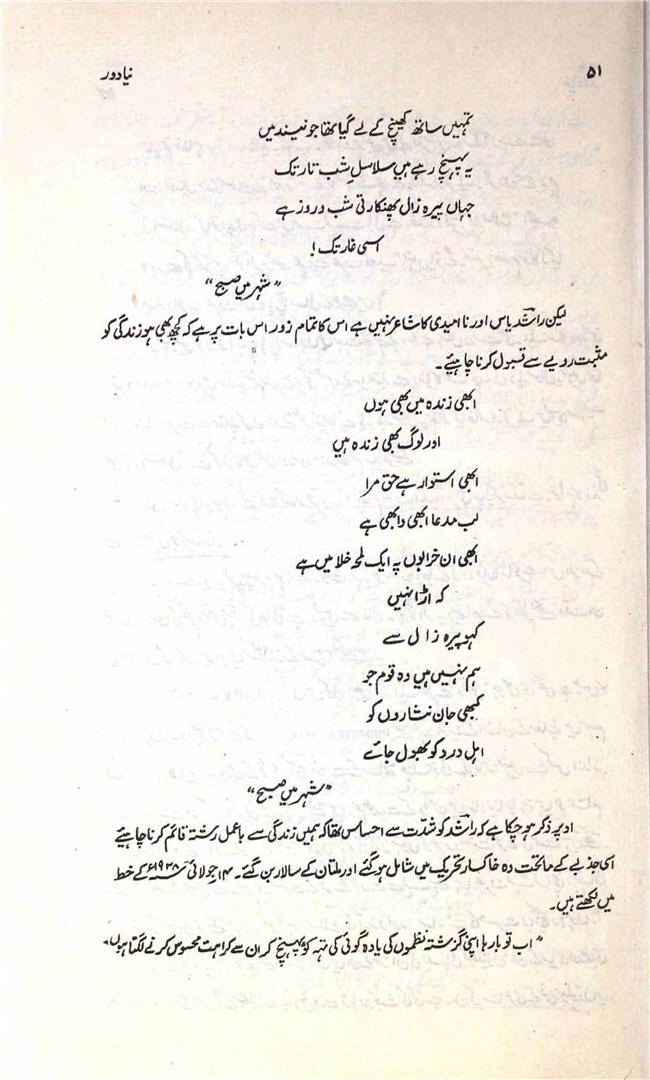 ۵۱
نیا دور
تمہیں ساتھ کھینچ کے لے گیا تھا جو نیند میں
یہ پہنچ رہے ہیں سلاسلِ شب تار تک
جہاں پیرہ زال پھنکارتی شب و روز ہے
اسی غار تک!
"شہر میں صبح"
لیکن راشدؔ یاس اور ناامیدی کا شاعر نہیں ہے اس کا تمام زور اس بات پر ہے کہ کچھ بھی ہو زندگی کو
مثبت رویے سے قبول کرنا چاہیئے۔
ابھی زندہ میں بھی ہوں
اور لوگ بھی زندہ ہیں
ابھی استوار ہے حق مرا
لب مدعا ابھی وا بھی ہے
ابھی ان خرابوں پہ ایک لمحہ خلا میں ہے
کہ اڑا نہیں
کہو پیرہ زال سے
ہم نہیں ہیں وہ قوم جو
کبھی جان نثاروں کو
اہل درد کو بھول جائے
"شہر میں صبح"
اوپر ذکر ہو چکا ہے کہ راشدؔ کو شدّت سے احساس تھا کہ ہمیں زندگی سے باعمل رشتہ قائم کرنا چاہیئے
اسی جذبے کے ماتحت وہ خاکسار تحریک میں شامل ہو گئے اور ملتان کے سالار بن گئے۔ ۱۴ جولائی ۱۹۳۸ء کے خط
میں لکھتے ہیں۔
"اب تو بارہا اپنی گزشتہ نظموں کی یاوہ گوئی کی تہہ کو پہنچ کر ان سے کراہت محسوس کرنے لگتا ہوں۔